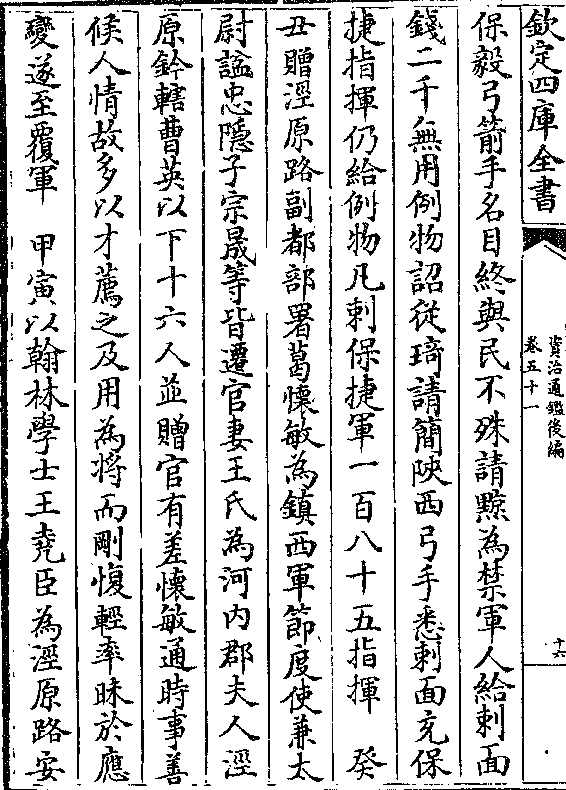 欽定四庫全書
資治通鑑後編
卷五十一
十六
保毅弓箭手名目終與民不殊請黥為禁軍人給刺面
錢二千無用例物詔從琦請簡陜西弓手悉刺面充保
捷指揮仍給例物凡刺保捷軍一百八十五指揮　癸
丑贈涇原路副都部署葛懷敏為鎮西軍節度使兼太
尉謚忠隱子宗晟等皆遷官妻王氏為河内郡夫人涇
原鈐轄曹英以下十六人並贈官有差懷敏通時事善
候人情故多以才薦之及用為將而剛愎輕率昧於應
變遂至覆軍　甲寅以翰林學士王堯臣為涇原路安